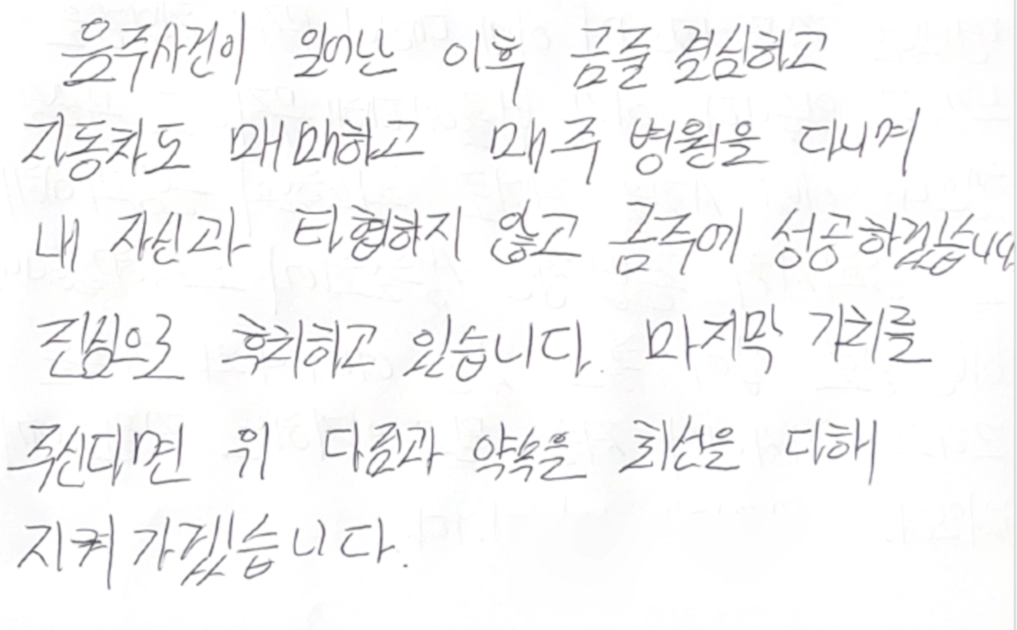 음주사건이 일어난 이후 금주를 결심하고
자동차도 매매하고 매주 병원을 다니며
내 자신과 타협하지 않고 금주에 성공하겠습니다
진심으로 후회하고 있습니다. 마지막 기회를
주신다면 위 다짐과 약속을 최선을 다해
지켜 가겠습니다.